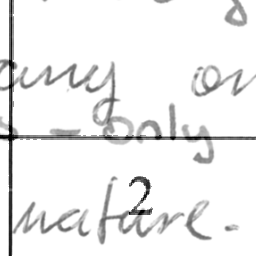 any on
- only
2
nature.